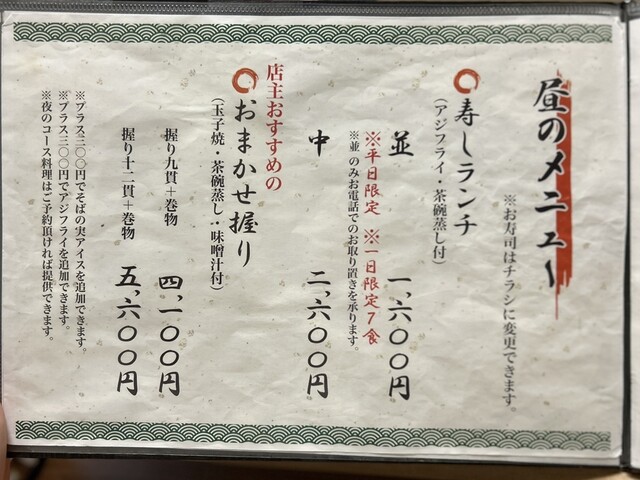 昼のメニュー
※お寿司はチラシに変更できます。
寿しランチ
(アジフライ・茶碗蒸し付)
並 一、六〇〇円
※平日限定 ※一日限定7食
※並 のみお電話でのお取り置きを承ります。
中 二、六〇〇円
店主おすすめの
おまかせ握り
(玉子焼・茶碗蒸し・味噌汁付)
握り九貫+巻物 四、一〇〇円
握り十二貫+巻物 五、六〇〇円
※プラス二〇〇円でそばの実アイスを追加できます。
※プラス三〇〇円でアジフライを追加できます。
※夜のコース料理はご予約頂ければ提供できます。